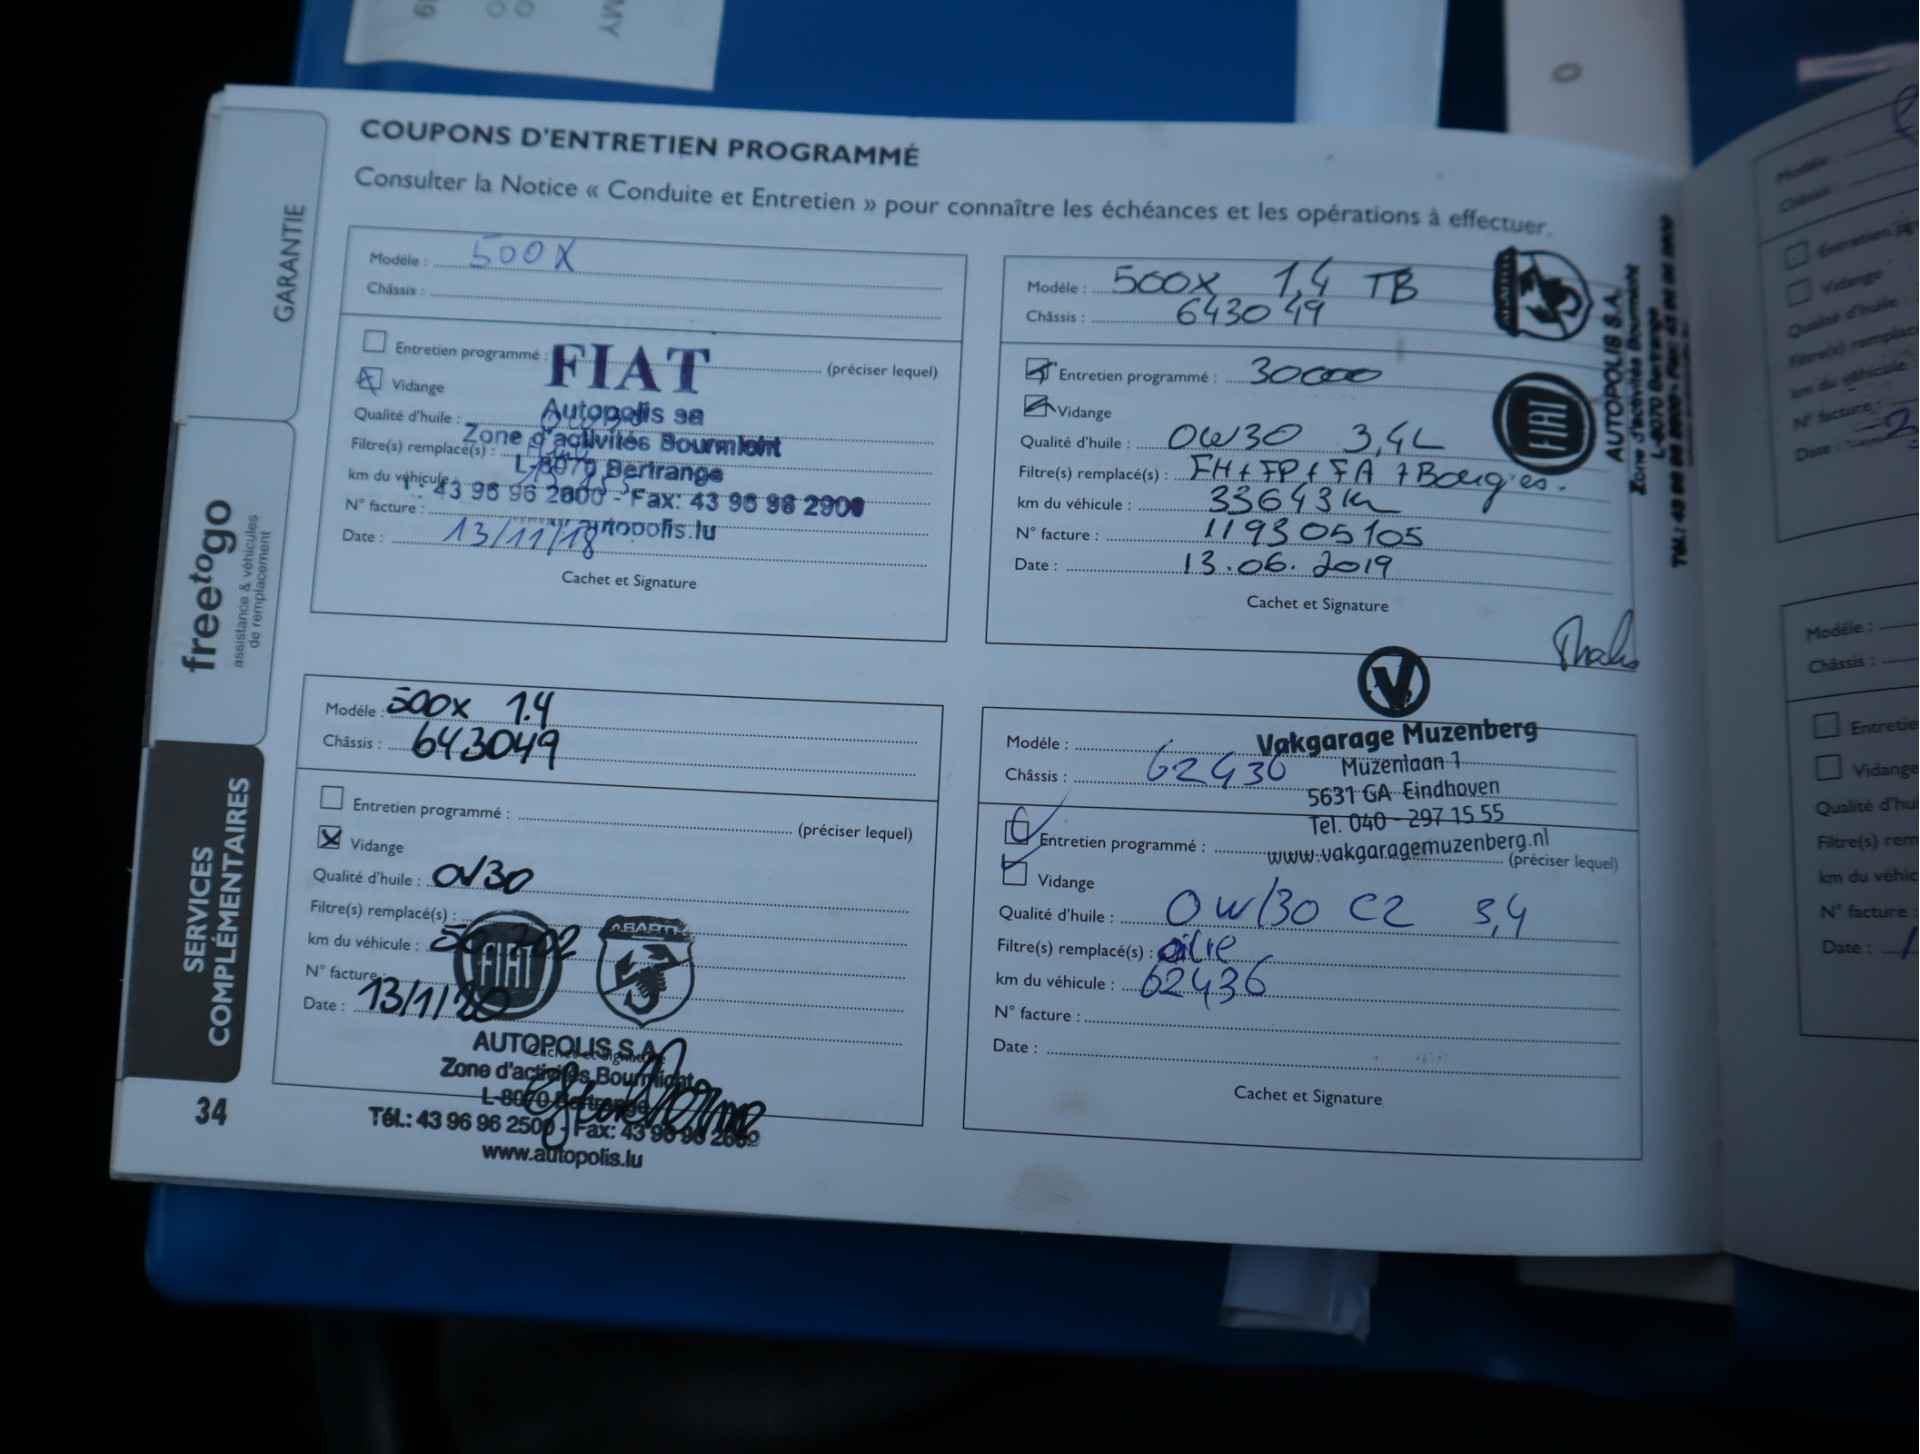 COUPONS D'ENTRETIEN PROGRAMMÉ
Consulter la Notice « Conduite et Entretien » pour connaître les échéances et les opérations à effectuer.
GARANTIE
freetogo
assistance & véhicules
de remplacement
SERVICES
COMPLÉMENTAIRES
34
Modèle : 500X
Châssis :
Entretien programmé : (préciser lequel)
Vidange
Qualité d'huile :
Filtre(s) remplacé(s) :
km du véhicule :
N° facture :
Date : 13/11/18
Cachet et Signature
FIAT
Autopolis sa
Zone d'activités Bourmicht
L-8070 Bertrange
43 96 96 2600 - Fax: 43 96 96 2900
autopolis.lu
Modèle : 500X 1,4 TB
Châssis : 643049
Entretien programmé : 30000
Vidange
Qualité d'huile : 0W30 3,4L
Filtre(s) remplacé(s) : FH + FP + FA + Bougies.
km du véhicule : 33643 km
N° facture : 119305105
Date : 13.06.2019
Cachet et Signature
ABARTH
FIAT
AUTOPOLIS S.A.
Zone d'activités Bourmicht
L-8070 Bertrange
Modèle : 500X 1.4
Châssis : 643049
Entretien programmé : (préciser lequel)
Vidange
Qualité d'huile : 0W30
Filtre(s) remplacé(s) :
km du véhicule :
N° facture :
Date : 13/1/20
FIAT
ABARTH
AUTOPOLIS S.A.
Cachet et Signature
Zone d'activités Bourmicht
L-8070 Bertrange
Tél.: 43 96 96 2500 - Fax: 43 96 96
www.autopolis.lu
V
Vakgarage Muzenberg
Muzenlaan 1
5631 GA Eindhoven
Tel. 040 - 297 15 55
www.vakgaragemuzenberg.nl
Modèle :
Châssis : 62436
Entretien programmé : (préciser lequel)
Vidange
Qualité d'huile : 0W/30 C2 3,4
Filtre(s) remplacé(s) : olie
km du véhicule : 62436
N° facture :
Date :
Cachet et Signature
Modèle :
Châssis :
Vidange
Qualité d'huile :
N° facture :
Date :
Modèle :
Châssis :
Vidange
N° facture :
Date :